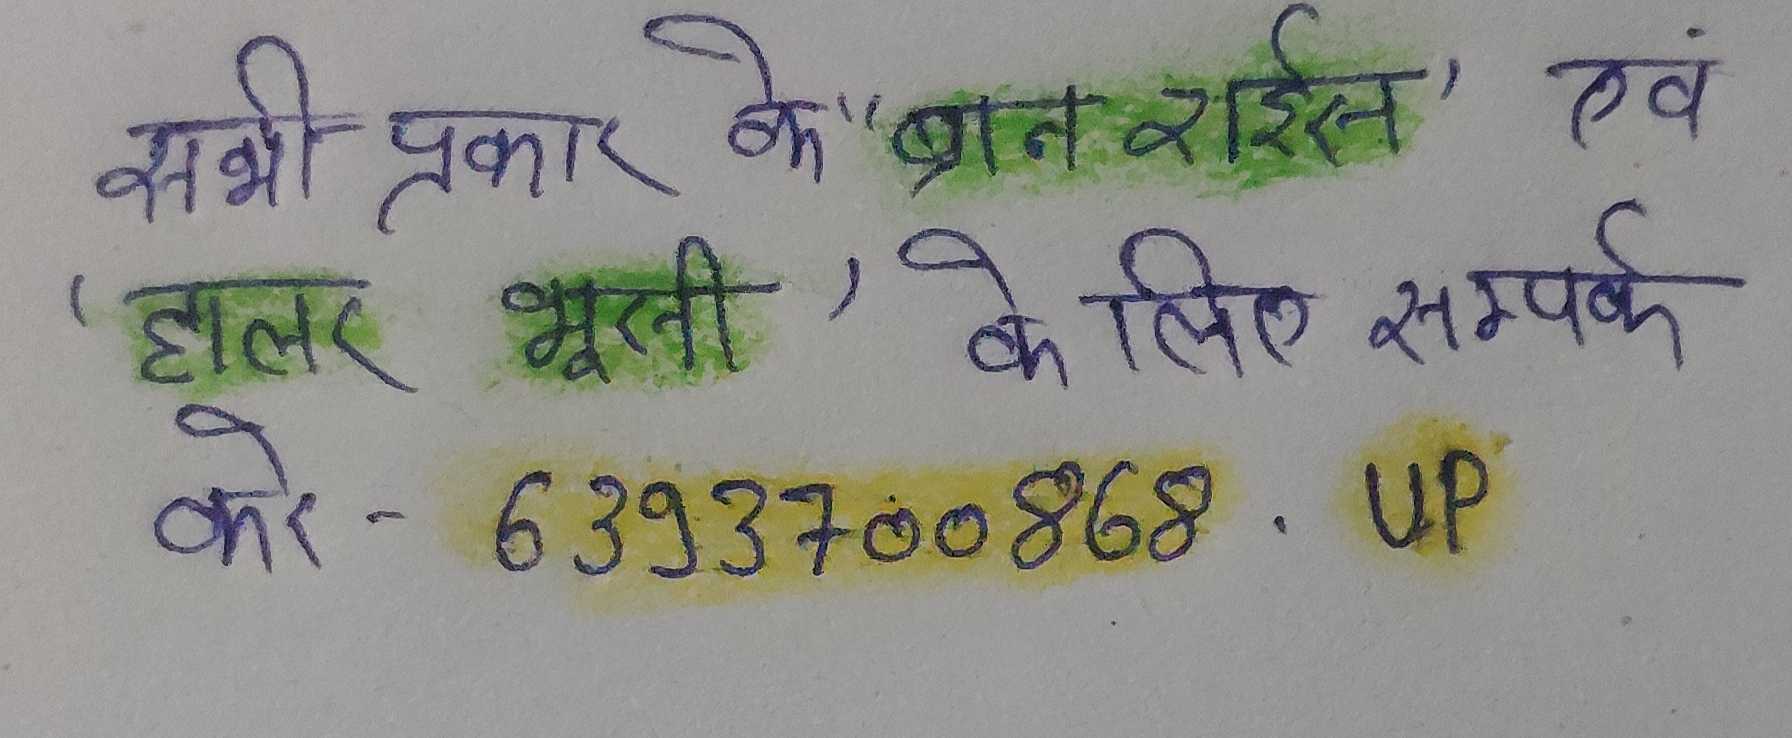 सभी प्रकार के "ब्रान राईस' एवं
'हालर भूसी' के लिए सम्पर्क
करे - 6393700868. UP